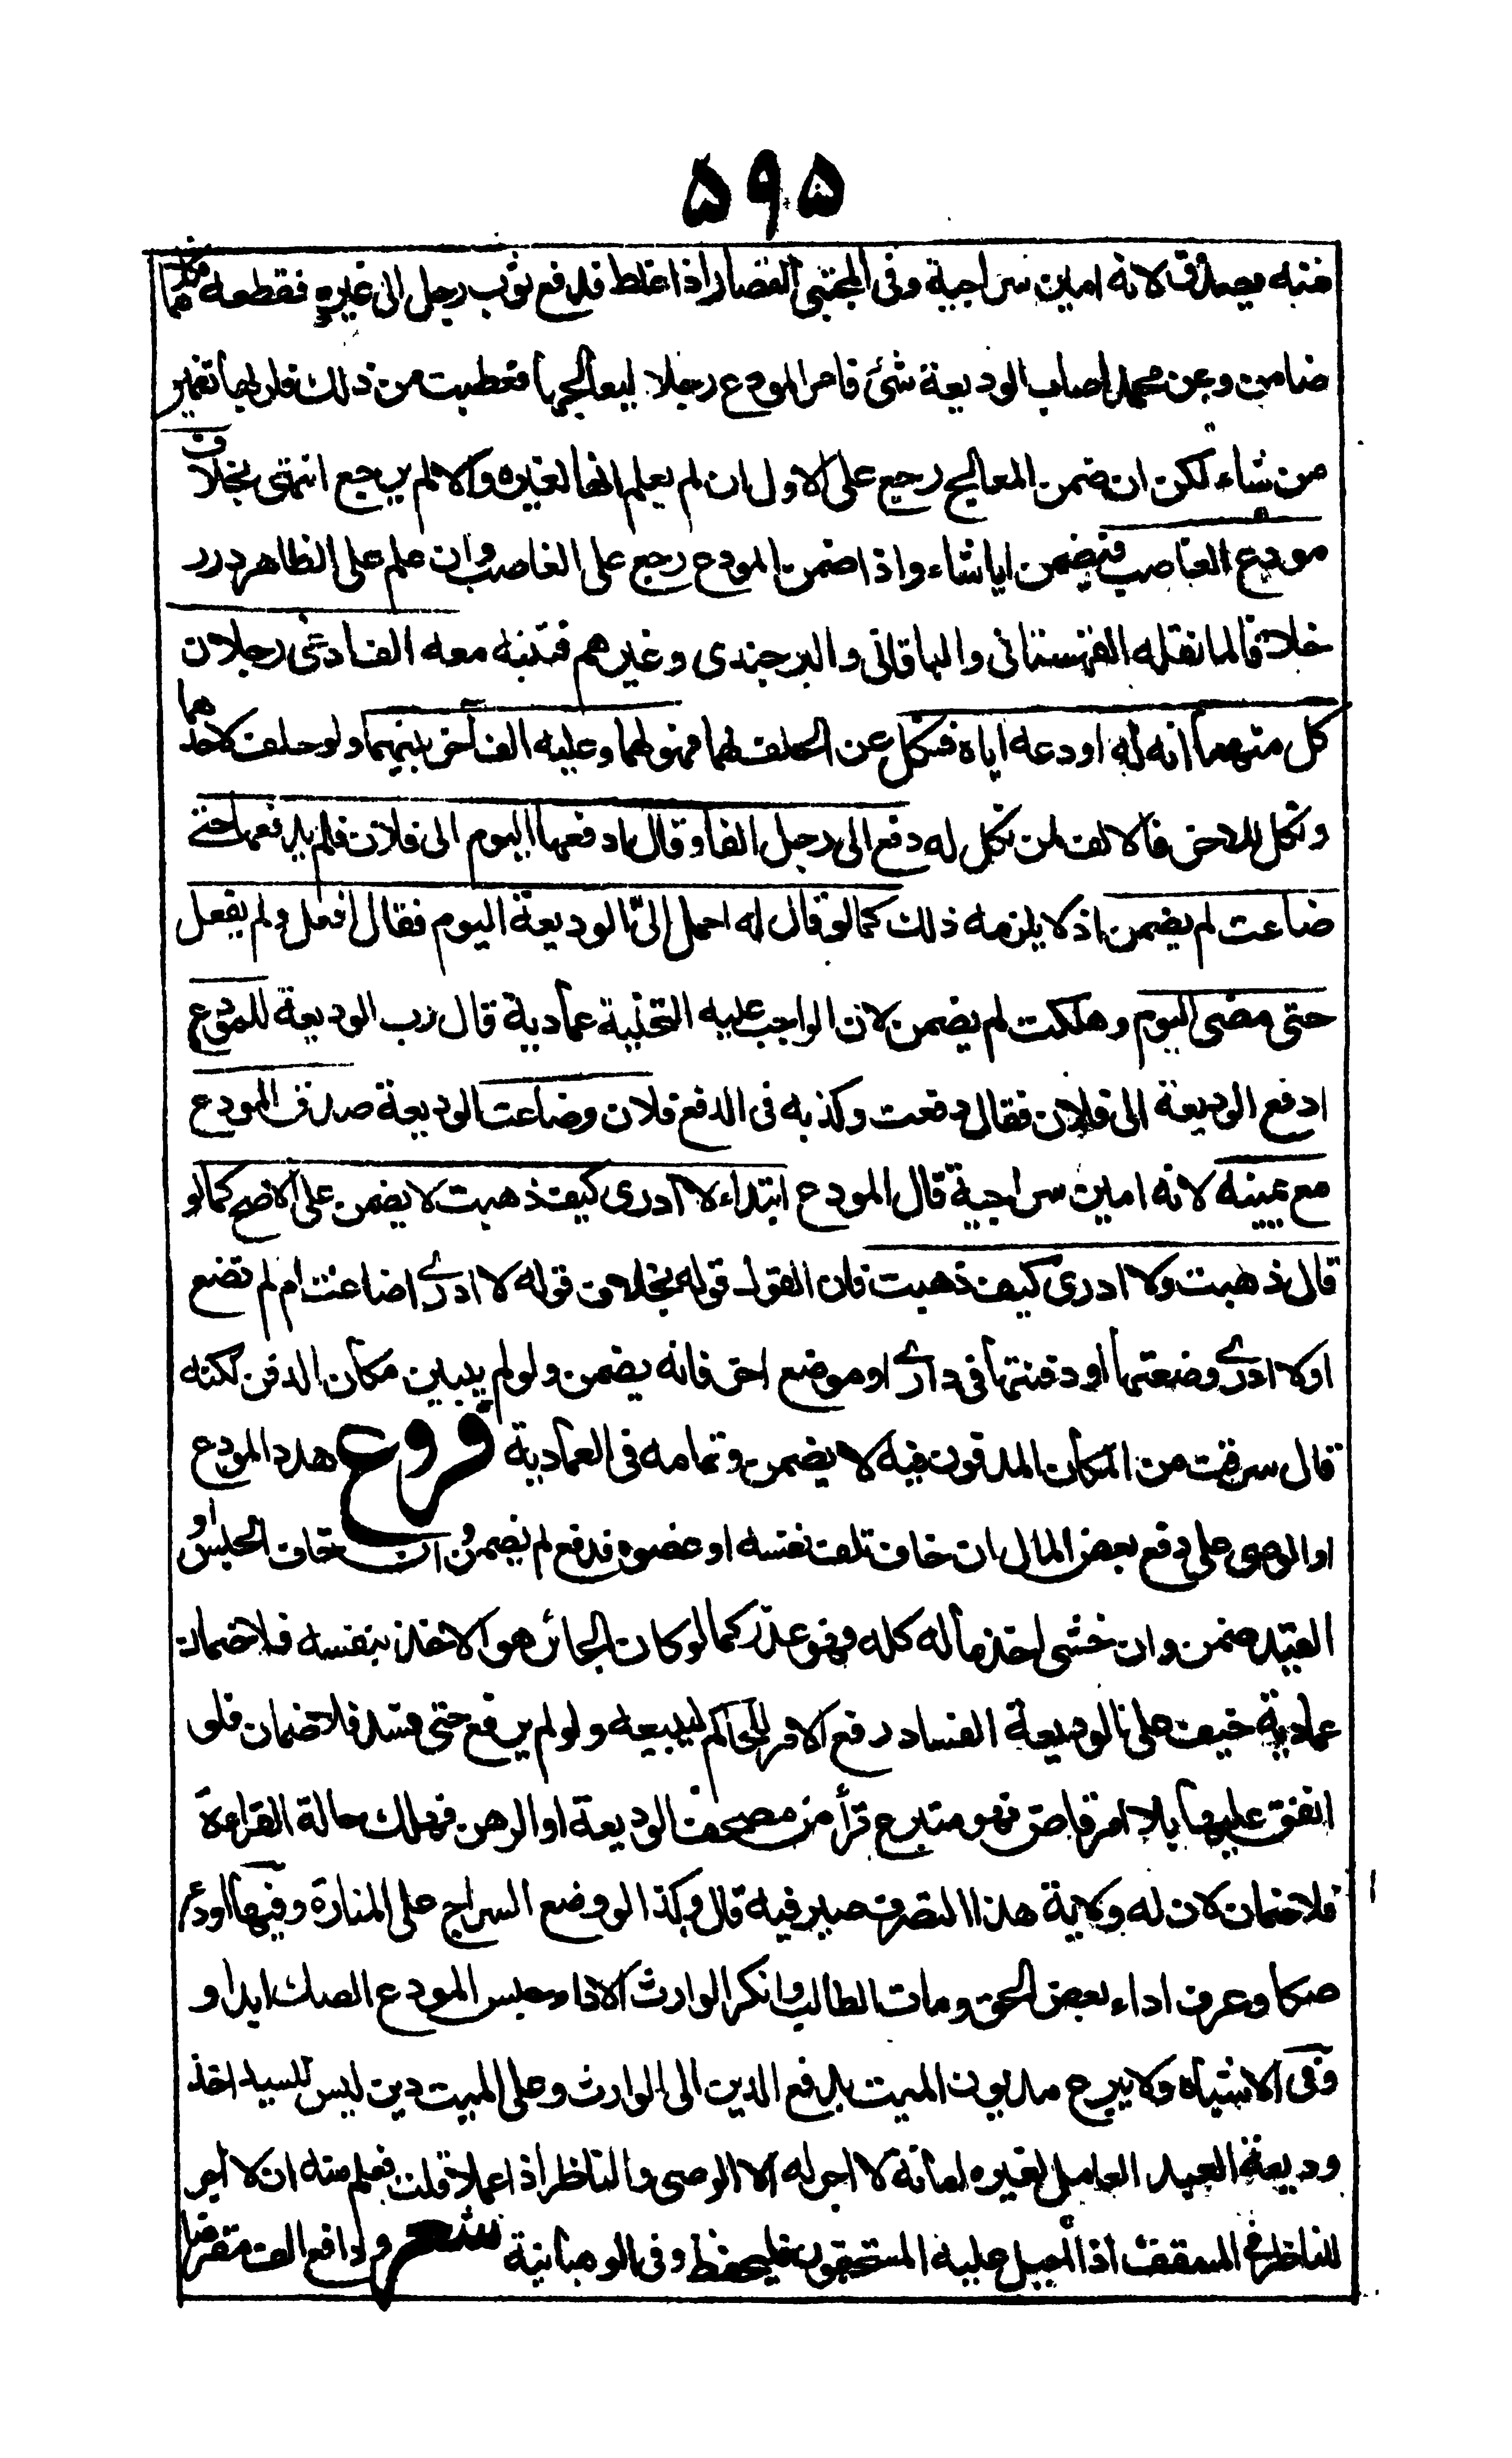 ٥٩٥
فنبه ويصدق لانه امين سراجية وفى المجتبى القصار اذا غلط فدفع ثوب رجل الى غيره فقطعه فكلاهما
ضامن وعن محمد اصاب الوديعة شئ فامر المودع رجلا ليعالجها فعطبت من ذلك فلربها تضمين
من شاء لكن ان ضمن المعالج رجع على الاول ان لم يعلم انها لغيره والا لم يرجع انتهى بخلاف
مودع الغاصب فيضمن ايا شاء واذا ضمن المودع رجع على الغاصب وان علم على الظاهر درر
خلافا لما نقله القهستانى والباقانى والبرجندى وغيرهم فتنبه معه الف ادعى رجلان
كل منهما انه له اودعه اياه فنكل عن الحلف لهما فهو لهما وعليه الف آخر بينهما ولو حلف لاحدهما
ونكل للاخر فالالف لمن نكل له دفع الى رجل الفا وقال ادفعها اليوم الى فلان فلم يدفعها حتى
ضاعت لم يضمن اذ لا يلزمه ذلك كما لو قال له احمل الىّ الوديعة اليوم فقال افعل ولم يفعل
حتى مضى اليوم وهلكت لم يضمن لان الواجب عليه التخلية عمادية قال رب الوديعة للمودع
ادفع الوديعة الى فلان فقال دفعت وكذبه فى الدفع فلان وضاعت الوديعة صدق المودع
مع يمينه لانه امين سراجية قال المودع ابتداء لا ادرى كيف ذهبت لا يضمن على الاصح كما لو
قال ذهبت ولا ادرى كيف ذهبت فان القول قوله بخلاف قوله لا ادرى اضاعت ام لم تضع
او لا ادرى وضعتها او دفنتها فى دارى او موضع اخر فانه يضمن ولو لم يبين مكان الدفن لكنه
قال سرقت من المكان المدفون فيه لا يضمن وتمامه فى العمادية فروع هدد المودع
او الوصى على دفع بعض المال ان خاف تلف نفسه او عضوه فدفع لم يضمن وان خاف الحبس او
القيد ضمن وان خشى اخذ ماله كله فهو عذر كما لو كان الجائر هو الاخذ بنفسه فلا ضمان
عمادية خيف على الوديعة الفساد رفع الامر للحاكم ليبيعه ولو لم يرفع حتى فسد فلا ضمان فلو
انفق عليها بلا امر قاض فهو متبرع قرأ من مصحف الوديعة او الرهن فهلك حالة القراءة
فلا ضمان لان له ولاية هذا التصرف صيرفية قال وكذا لو وضع السراج على المنارة وفيها اودع
صكا وعرف اداء بعض الحق ومات الطالب وانكر الوارث الاداء حبس المودع الصك ابدا و
وفى الاشباه ولا يبرء مديون الميت بدفع الدين الى الوارث وعلى الميت دين ليس للسيد اخذ
وديعة العبد العامل لغيره امانة لا اجر له الا الوصى والناظر اذا عملا قلت فعلم منه ان لا اجر
للناظر فى المسقف اذا احيل عليه المستحقون فليحفظ وفى الوهبانية شعر ودافع الف مقرضا